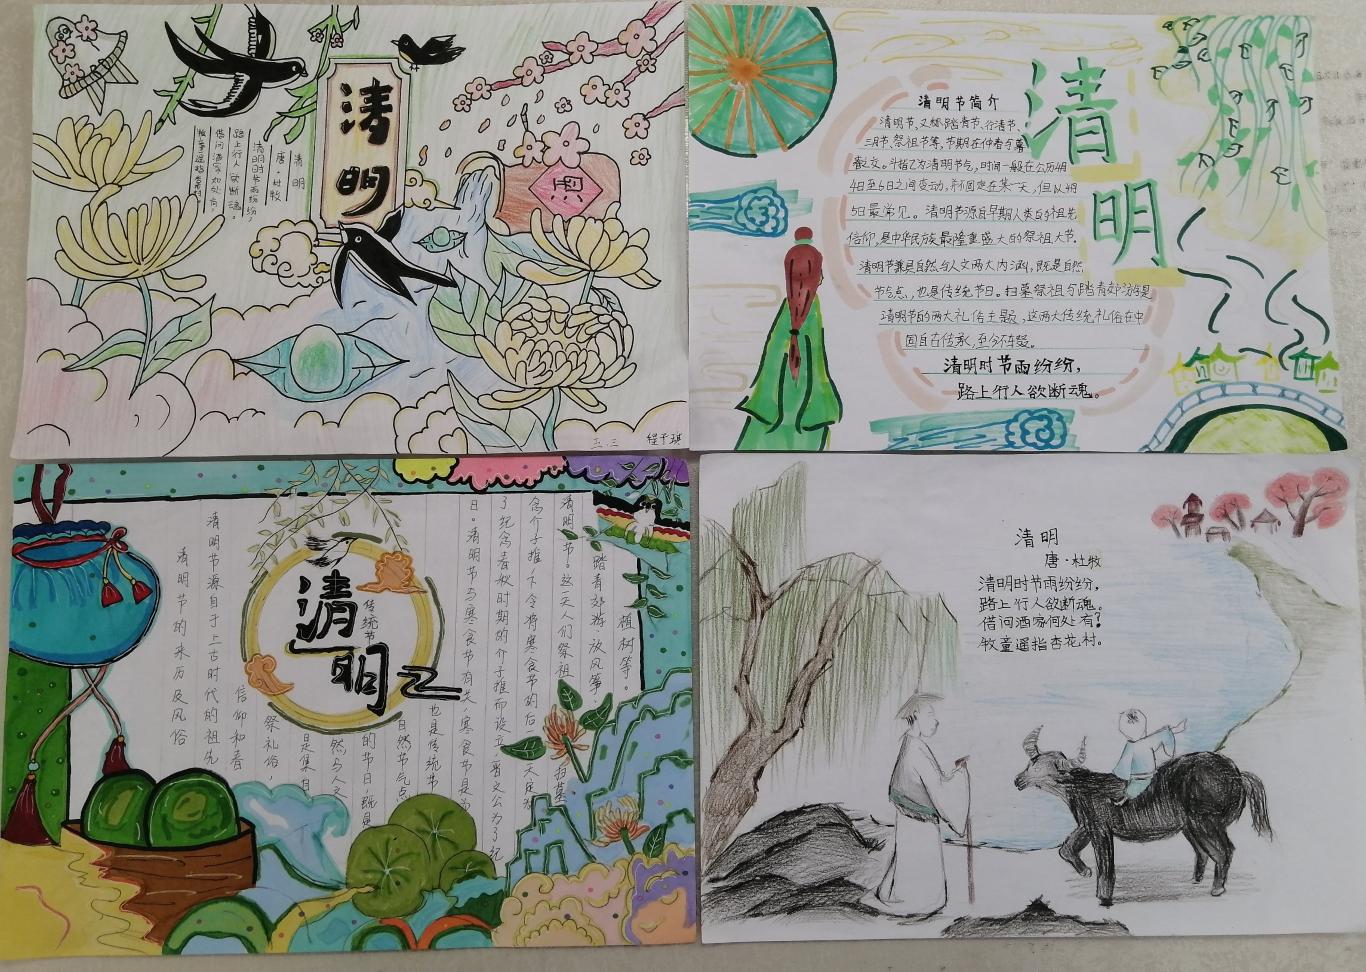 清明
清明
唐·杜牧
清明时节雨纷纷，
路上行人欲断魂。
借问酒家何处有，
牧童遥指杏花村
五.三
程于琪
清明
清明节简介
清明节，又称踏青节、行清节、
三月节、祭祖节等，节期在仲春与暮
春之交。斗指乙为清明节气，时间一般在公历4月
4日至6日之间变动，并不固定在某一天，但以4月
5日最常见。清明节源自早期人类的祖先
信仰，是中华民族最隆重盛大的祭祖大节。
清明节兼具自然与人文两大内涵，既是自然
节气点，也是传统节日。扫墓祭祖与踏青郊游是
清明节的两大礼俗主题，这两大传统礼俗在中
国自古传承，至今不辍。
清明时节雨纷纷，
路上行人欲断魂。
清明
传统节
清明节的来历及风俗
清明节源自于上古时代的祖先
信仰和春
祭礼俗，
是集自
然与人文
的节日，既是
自然节气点
也是传统节
日。清明节与寒食节有关，寒食节是为
了纪念春秋时期的介子推而设立，晋文公为了纪
念介子推，下令将寒食节的后一天定为
清明节。这一天人们祭祖
扫墓
踏青郊游、放风筝
植树等。
清明
唐·杜牧
清明时节雨纷纷，
路上行人欲断魂。
借问酒家何处有？
牧童遥指杏花村。